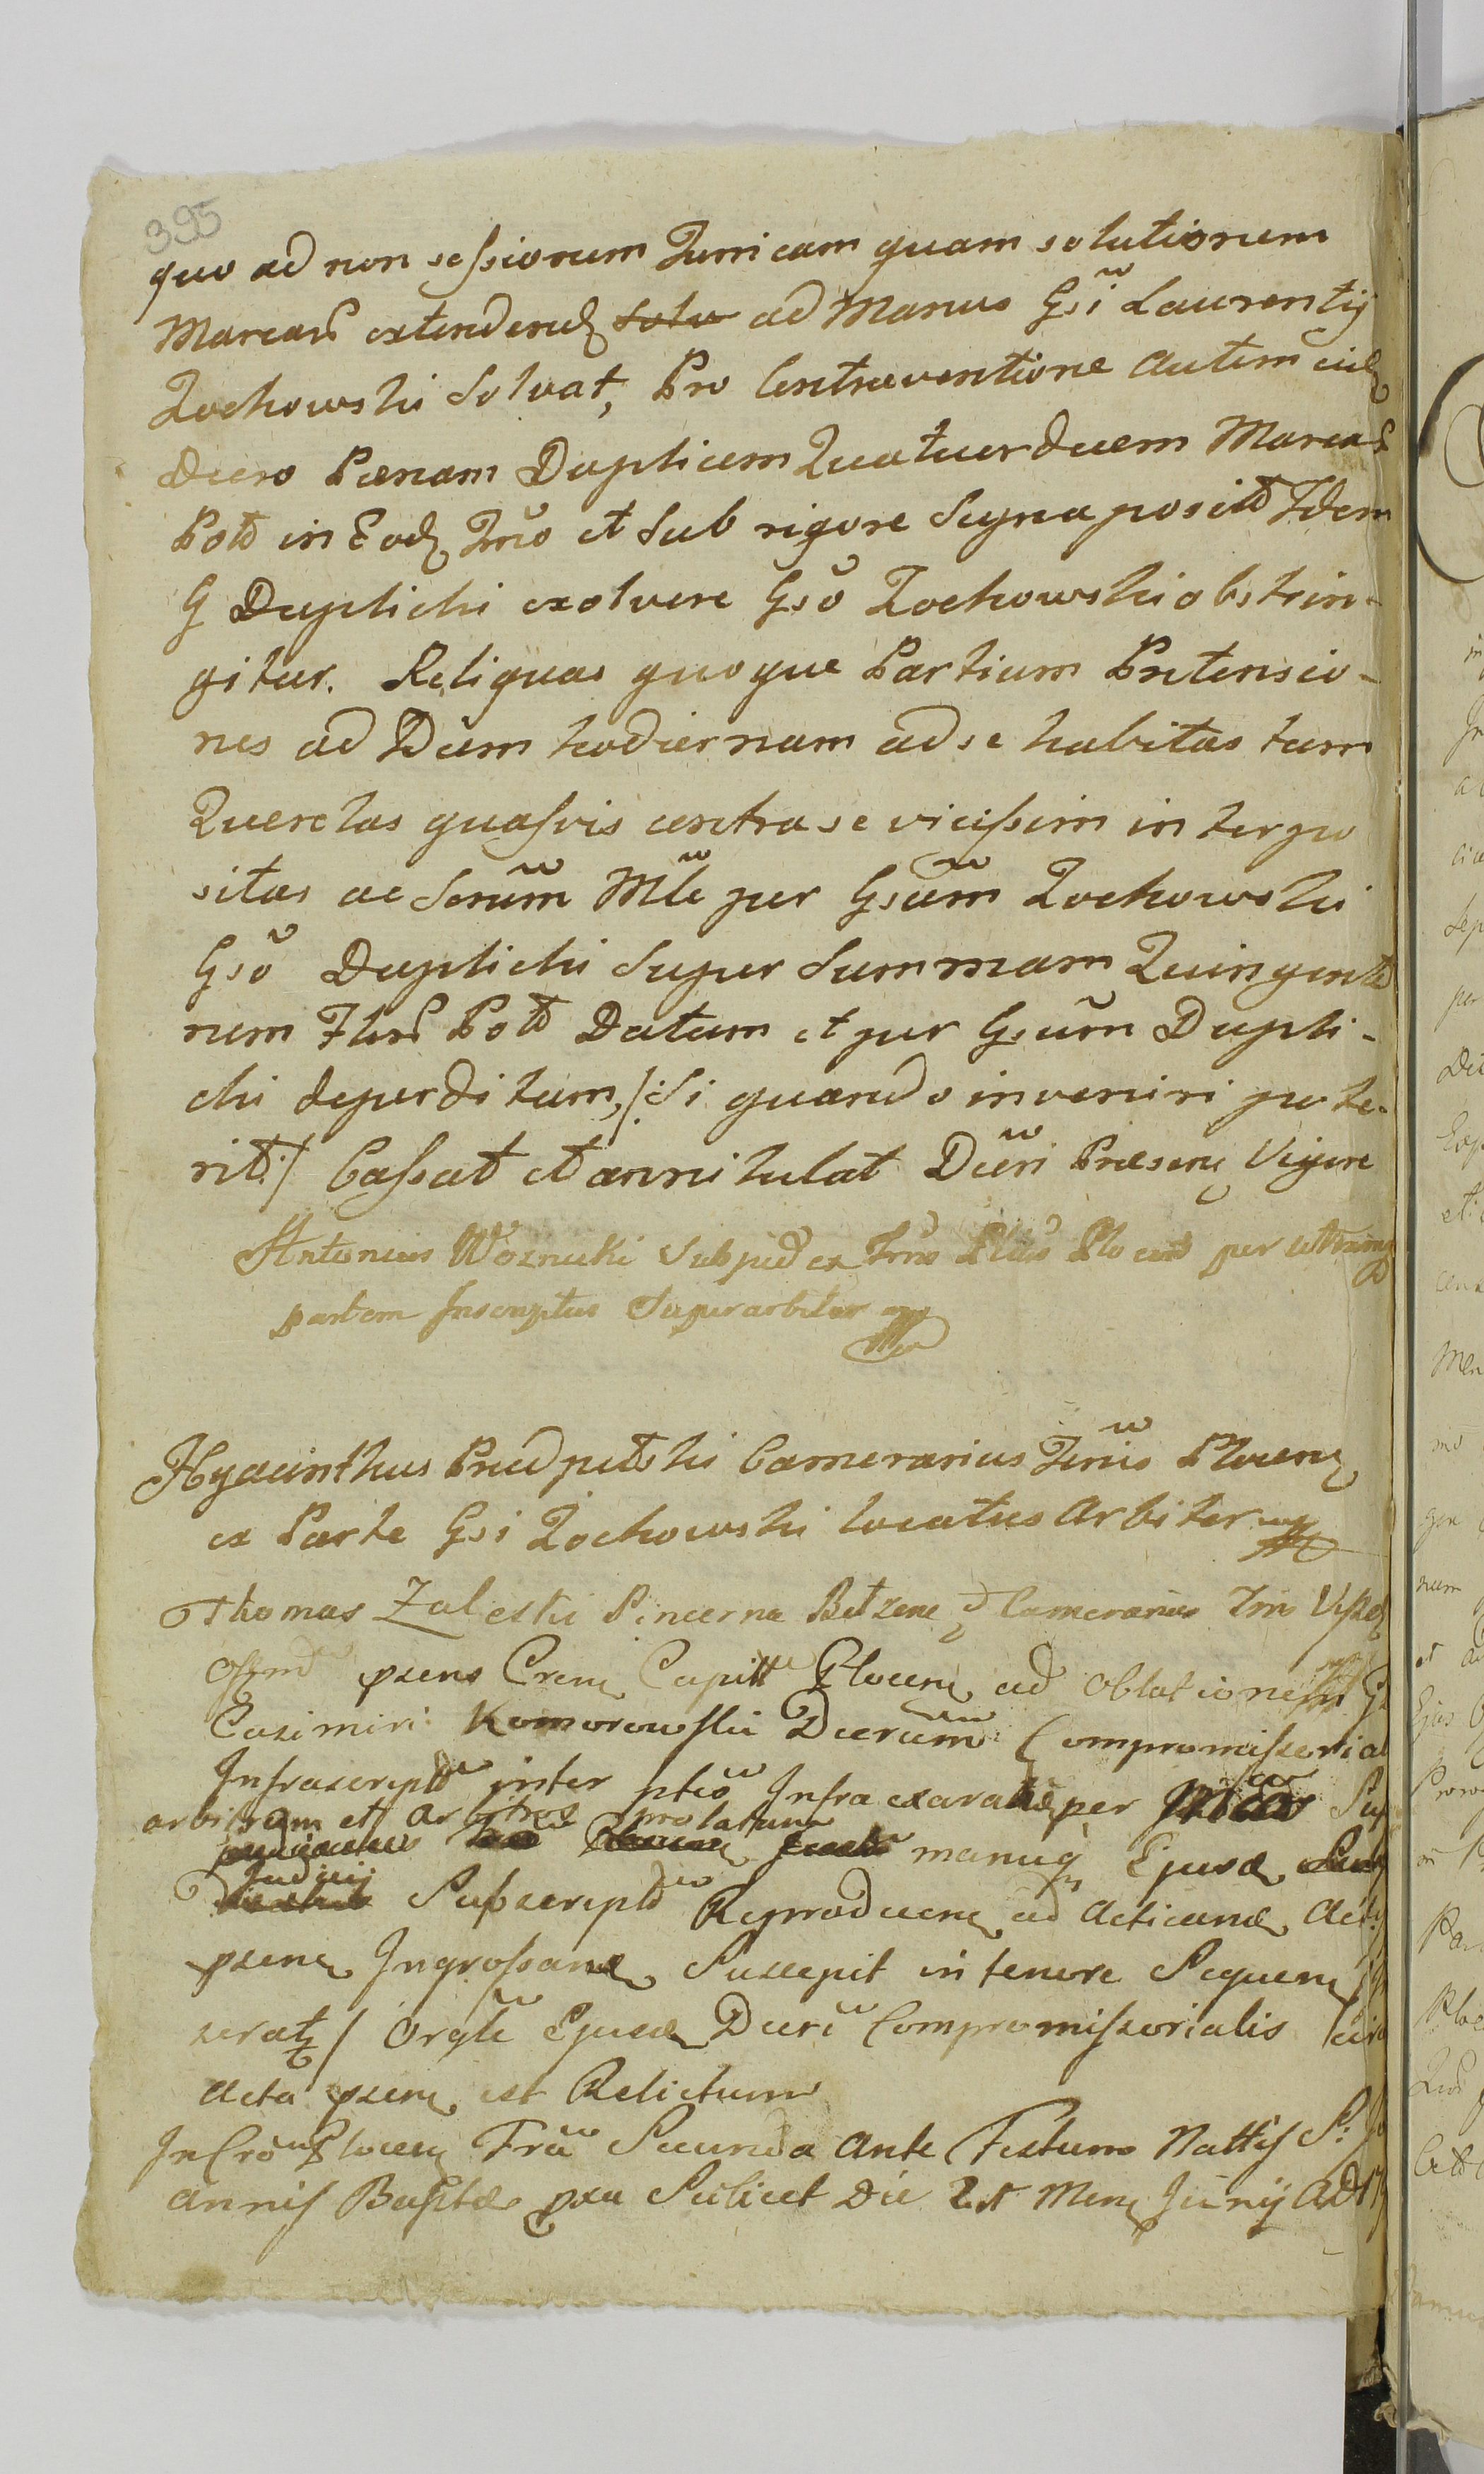 395
quo ad non sessionem Turricam quam solutionem
Marcarū extendend ad Manus Gsi Laurentij
Zochowski Solvat, Pro Contraventione autem eid
Decro Pœnam Duplicem Quatuordecem Marcar
Pol in Eod Trrio et Sub rigore Supra posito Idem
G Duplicki exolvere Gso Zochowski obstrin-
gitur. Reliquas quoque Partium Prætensio-
nes ad Diem hodiernam ad se habitas tam
Querelas quasvis contra se vicissim interpo
sitas ac per Gsum Zochowski
Gso Duplicki Super Summam Quingento
rum Flor Pol Datum et per Gsum Dupli-
cki deperditum, /: Si quando inveniri pote-
rit :/ Cassat et annihilat Decri Præsens Vigore
Antonius Woznicki Subjud ex Trrio Plocen per utramq
partem Inscriptus Superarbiter mpp
Hyacinthus Camerarius Plocens
ex Parte Gsi Zochowski locatus Arbiter mpp
Thomas Zaleski Pincerna Camerarius
Offm psens Crens Capit Plocens ad Oblationem
Casimiri Komorowski Decrum Compromissorial
Infrascript inter ptes Infra exaratas per Sup
arbitrum et arbitros prolatum
manuq Ejusd
Judicij
Subscript Reproducens ad Acticand Act
psens Ingrossand Suscepit in tenore Sequen
serat / Orgle Ejusd Decri Compromissorialis circa
Acta psens est Relictum
In Cro Plocens Fria Secunda Ante Festum Nattis S:
annis Baptæ pxa Scilicet Die 21 Mens Junij AD 17